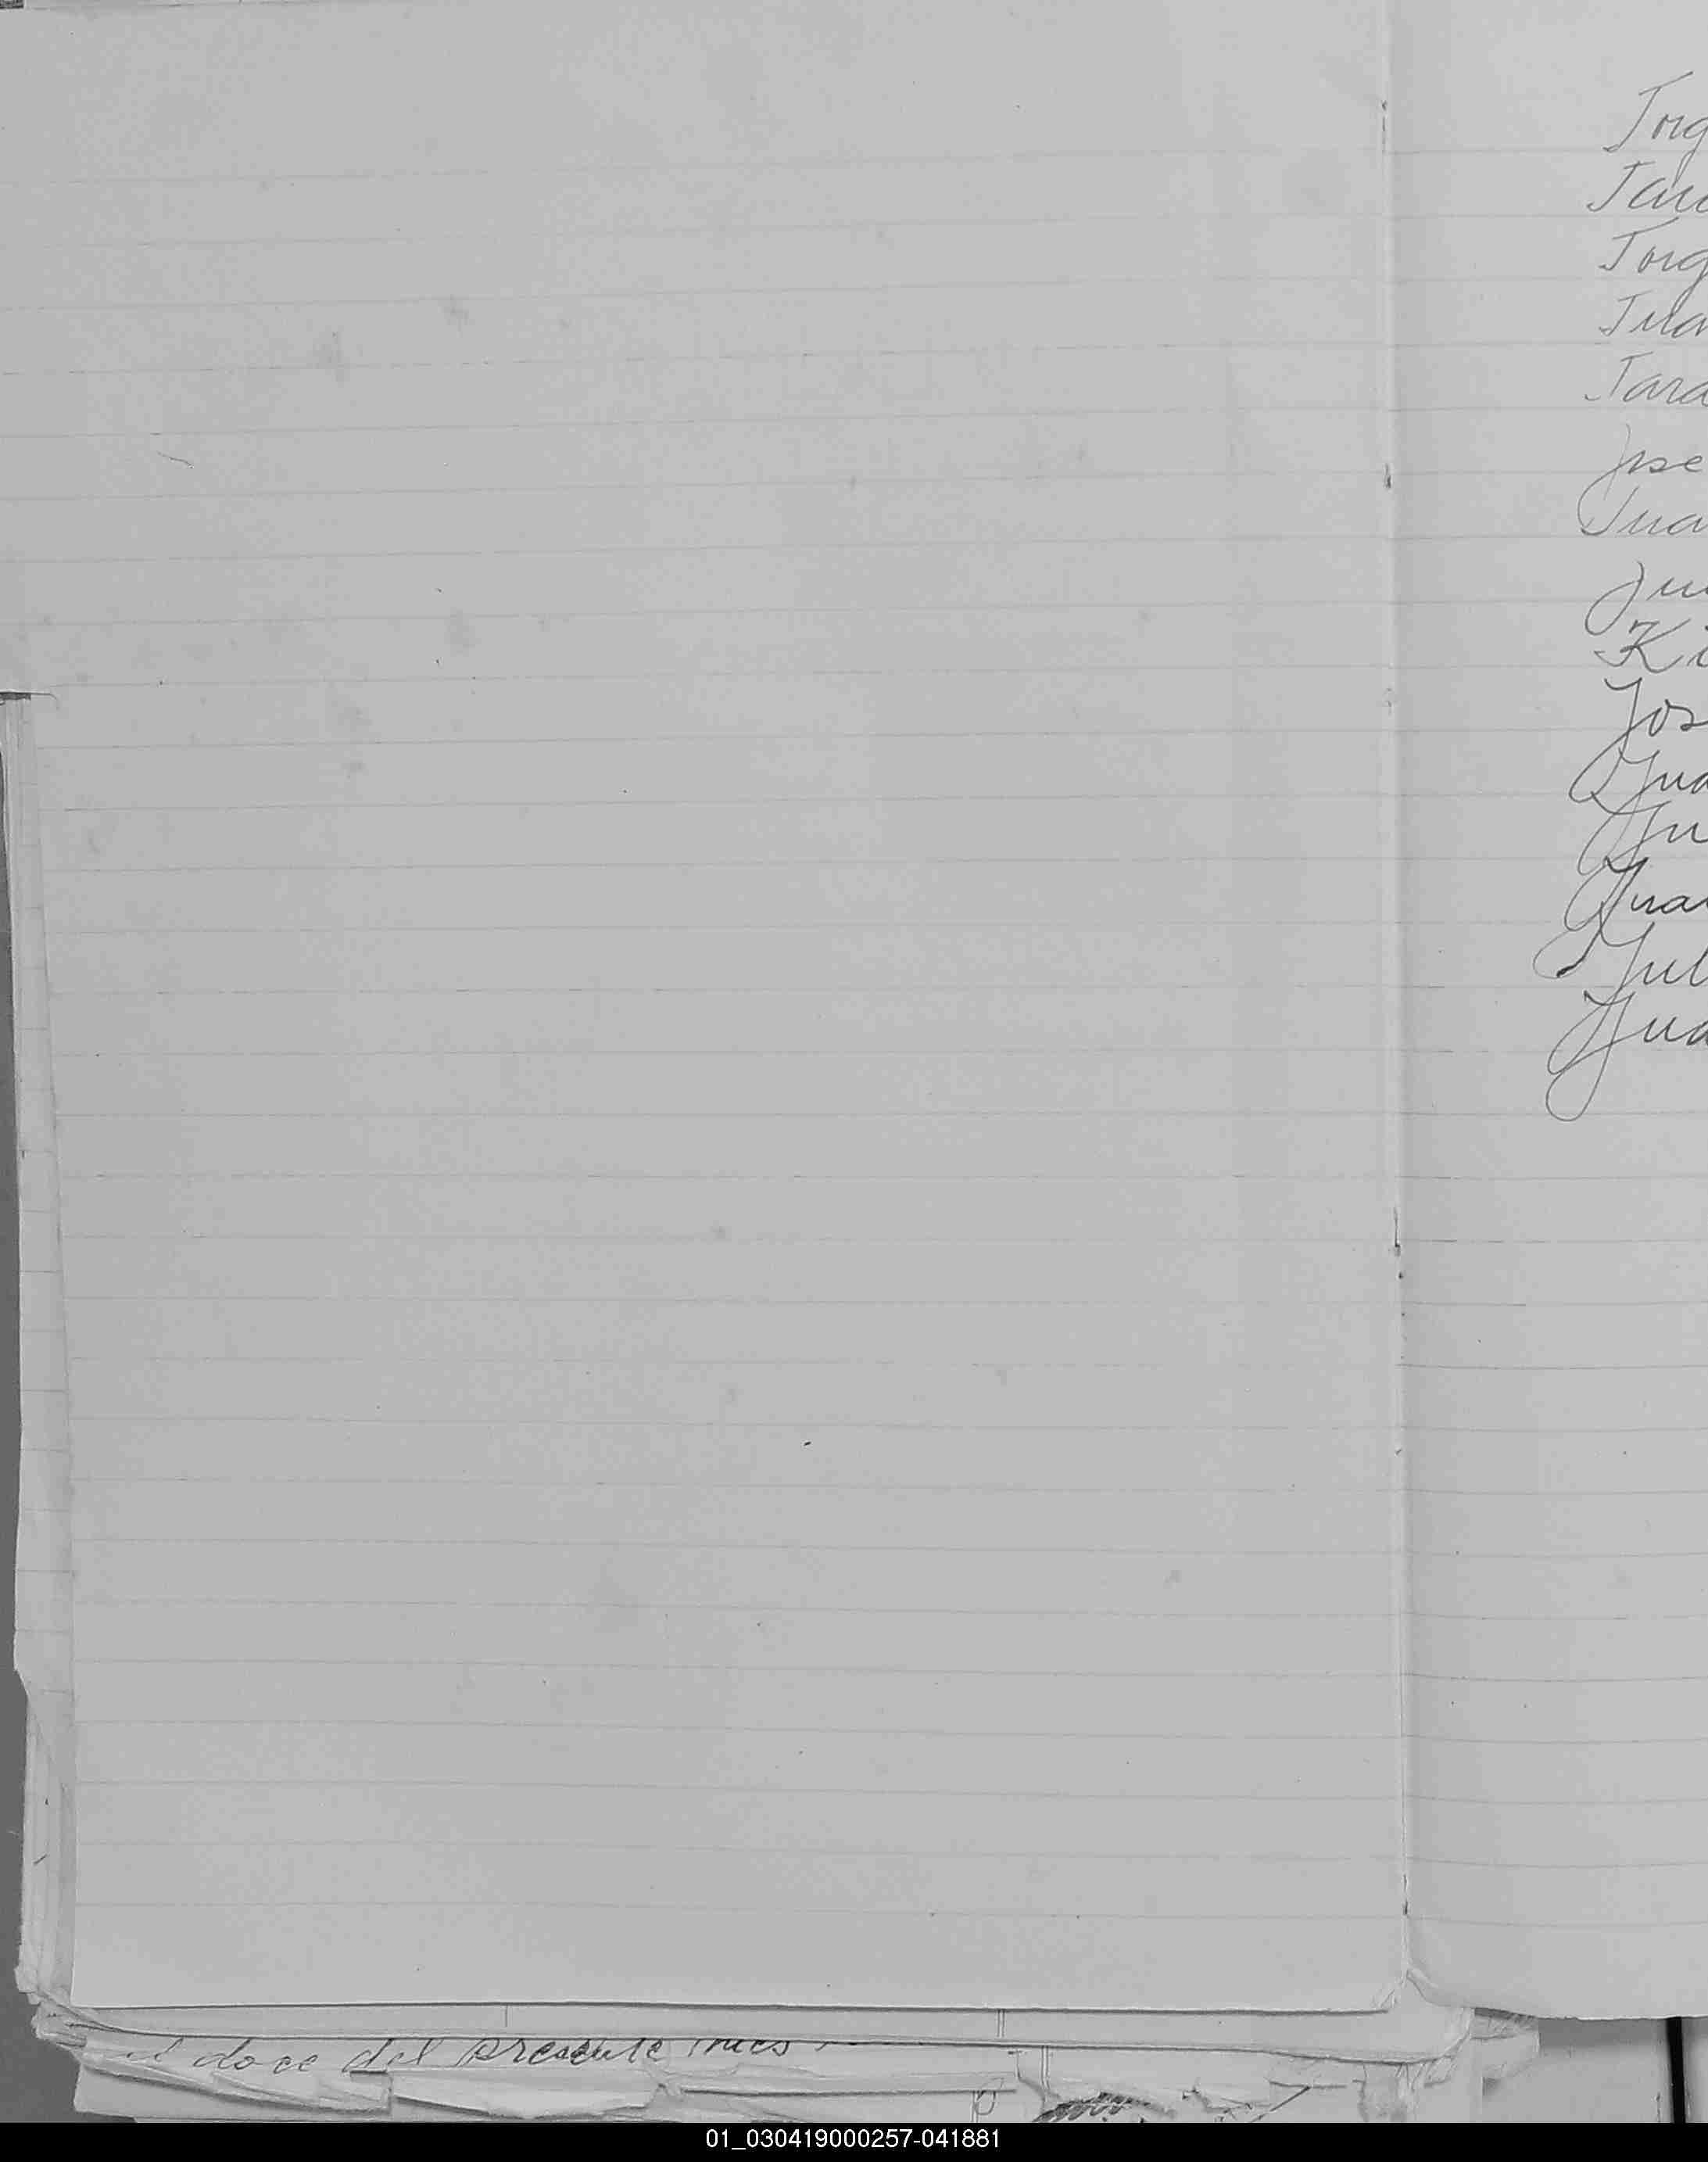 Jorg
Jau
Jorg
Jua
Jara
Jose
Jua
Ju
Ki
Jos
Jua
Ju
Jua
Jul
Jua
el doce del presente mes
01_030419000257-041881